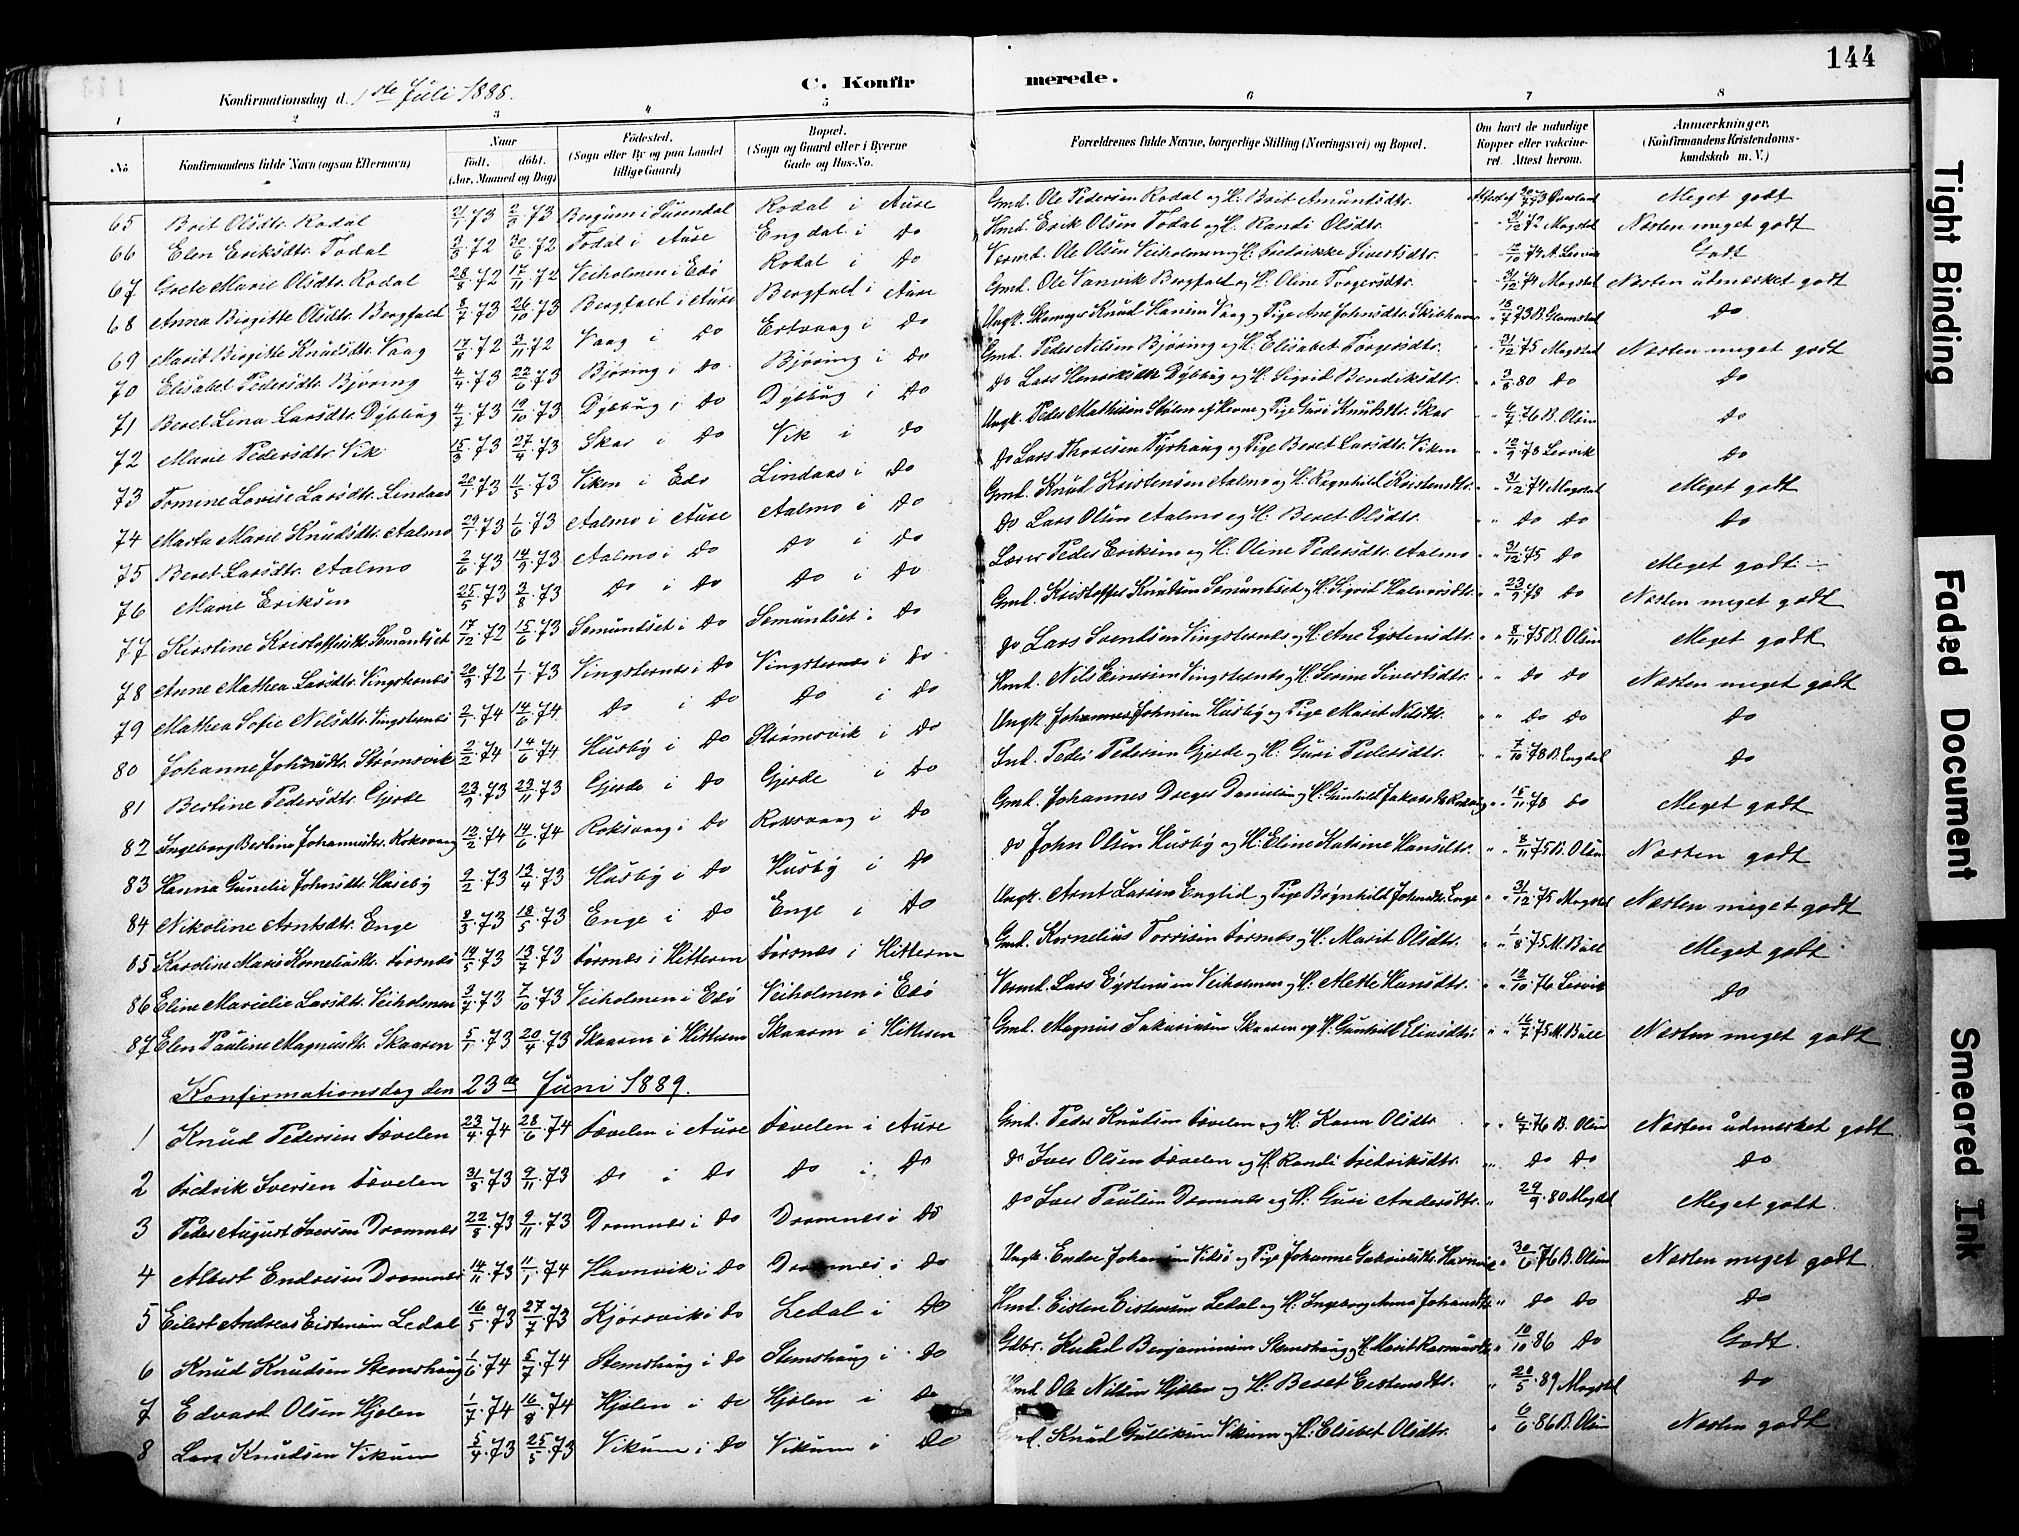 144
C. Konfirmerede.
Konfirmationsdag d. 1ste Juli 1888.
1 2 3 4 5 6 7 8
No Konfirmandens fulde Navn (ogsaa Efternavn) Naar Født. døbt. (Aar, Maaned og Dag) Fødested. (Sogn eller By og paa Landet tillige Gaard) Bopæl. (Sogn og Gaard eller i Byerne Gade og Hus-No. Forældrenes fulde Navne, borgerlige Stilling (Næringsvei) og Bopæl. Om havt de naturlige Kopper eller vakcineret. Attest herom. Anmærkninger. (Konfirmandens Kristendomskundskab m. V.)
65 Brit Olsdtr. Rodal 73 2/3 73 Rodal i Aure Gmd. Ole Pedersen Rodal og H. Brit Amundsdtr. Meget godt
66 Elen Eriksdtr. Todal 72 72 Todal i Aure Engdal i do Hmd. Erik Olsen Todal og H. Randi Olsdtr. 31/12 72 Mogstad Næsten meget godt
67 Grete Marie Olsdtr. Rodal 28/8 72 17/11 72 Veiholmen i Edø Rodal i do Vermd. Ole Olsen Veiholmen og H. Fredrikke Sivertsdtr. Godt
68 Anna Birgitte Olsdtr. Bergfald 8/7 73 26/10 73 Bergfald i Aure Bergfald i Aure Gmd. Ole Vanvik Bergfald og H. Oline Torgersdtr. 31/12 74 Mogstad Næsten udmærket godt
69 Marit Birgitte Knudsdtr. Vaag 17/8 72 3/11 72 Vaag i do Ertvaag i do Ungk. Knud Hansen Vaag og Pige Ane Johnsdtr. 18/7 73 do
70 Elisabet Pedersdtr. Bjøring 4/4 73 22/6 73 Bjøring i do Bjøring i do Gmd. Peder Nilsen Bjøring og H. Elisabet Torgersdtr. 31/12 75 Mogstad Næsten meget godt
71 Beret Lina Larsdtr. Dybbug 4/7 73 19/10 73 Dybbug i do Dybbug i do do Lars Henriksen Dybbug og H. Sigrid Bendiksdtr. 3/8 80 do do
72 Marie Pedersdtr. Vik 15/3 73 27/4 73 Skar i do Vik i do Ungk. Peder Mathisen og Pige Guri Knudsdtr. Skar 6/7 76 B. Olsen do
73 Tomine Lovise Larsdtr. Lindaas 20/1 73 11/5 73 Viken i Edø Lindaas i do do Lars Thoresen Tyrhaug og Pige Beret Larsdtr. Viken 12/9 73 Lervik do
74 Marta Marie Knudsdtr. Aalmo 29/1 73 1/6 73 Aalmo i Aure Aalmo i do Gmd. Knud Kristensen Aalmo og H. Ragnhild Kristensdtr. 31/12 74 Mogstad Meget godt
75 Beret Larsdtr. Aalmo 2/6 73 14/9 73 Aalmo i do do i do do Lars Olsen Aalmo og H. Beret Olsdtr. do do do
76 Marie Eriksen 25/5 73 3/8 73 do i do do i do Lærer Peder Eriksen og H. Oline Pedersdtr. Aalmo 31/12 75 do Meget godt
77 Kirstine Kristoffersdtr. Semundset 17/12 72 15/6 73 Semundset i do Semundset i do Gmd. Kristoffer Knudsen Semundset og H. Sigrid Halvorsdtr. 23/9 78 do Næsten meget godt
78 Anne Mathea Larsdtr. Vingsternes 20/9 72 1/1 73 Vingsternes i do Vingsternes i do do Lars Svendsen Vingsternes og H. Ane Eystensdtr. 8/11 75 B. Olsen Meget godt
79 Mathea Sofie Nilsdtr. Vingsternes 2/1 74 14/6 74 do i do do i do Hmd. Nils Einersen Vingsternes og H. Serine Sivertsdtr. do do Næsten meget godt
80 Johanne Johnsdtr. Strømsvik 2/2 74 14/6 74 Husby i do Strømsvik i do Ungk. Johannes Johnsen Husby og Pige Marit Nilsdtr. do do do
81 Berline Pedersdtr. Gjerde 23/9 73 23/11 73 Gjerde i do Gjerde i do Ind. Peder Pedersen Gjerde og H. Guri Pedersdtr. 7/10 78 B. Engdal do
82 Ingeborg Berlina Johannesdtr. Roksvaag 12/2 74 14/6 74 Roksvaag i do Roksvaag i do Gmd. Johannes Dreyer Danielsen og H. Gunhild Jakobsdtr. 15/11 78 do Meget godt
83 Hanna Gunelie Johnsdtr. Husby 2/2 73 13/4 73 Husby i do Husby i do do John Olsen Husby og H. Eline Katrine Hansdtr. 8/11 75 B. Olsen Næsten godt
84 Nikoline Arntsdtr. Enge 8/3 73 18/5 73 Enge i do Enge i do Ungk. Arnt Larsen Englid og Pige Brynhild Johnsdtr. Enge 31/12 75 Mogstad Næsten meget godt
85 Karoline Marie Korneliusdtr. Forsnæs 14/5 73 13/7 73 Forsnæs i Hitteren Forsnæs i Hitteren Gmd. Kornelius Torrisen Forsnæs og H. Marit Olsdtr. 1/8 75 M. Bull Meget godt
86 Eline Marcelie Larsdtr. Veiholmen 3/4 73 7/10 73 Veiholmen i Edø Veiholmen i Edø Vermd. Lars Eystensen Veiholmen og H. Mette Hansdtr. 18/10 76 Lervik do
87 Elen Pauline Magnusdtr. Skaaren 5/1 73 20/4 73 Skaaren i Hitteren Skaaren i Hitteren Gmd. Magnus Sakariasen Skaaren og H. Gunhild Eliasdtr. 16/7 75 M. Bull Næsten meget godt
Konfirmationsdag den 23de Juni 1889.
1 Knud Pedersen Fævelen 23/4 74 28/6 74 Fævelen i Aure Fævelen i Aure Gmd. Peder Knudsen Fævelen og H. Karen Olsdtr. 6/7 76 B. Olsen Næsten udmærket godt
2 Fredrik Iversen Fævelen 31/8 73 9/11 73 do i do do i do do Iver Olsen Fævelen og H. Randi Fredriksdtr. do do do
3 Peder August Iversen Dromnes 22/8 73 9/11 73 Dromnes i do Dromnes i do do Iver Paulsen Dromnes og H. Guri Andersdtr. 29/9 80 Mogstad Meget godt.
4 Albert Endresen Dromnes 14/11 73 11/1 74 Havnvik i do Dromnes i do Ungk. Endre Johansen og Pige Johanne Gabrielsdtr. Havnvik 30/6 76 B. Olsen Næsten meget godt.
5 Eilert Andreas Eistensen Ledal 16/5 73 27/7 73 Kjørsvik i do Ledal i do Hmd. Eisten Eistensen Ledal og H. Ingeborg Anna Johansdtr. do do do
6 Knud Knudsen Stemshaug 1/6 74 5/7 74 Stemshaug i do Stemshaug i do Gdbr. Knud Benjaminsen Stemshaug og H. Marit Rasmusdtr. 10/10 86 do Godt.
7 Edvart Olsen Hjelen 1/7 74 16/8 74 Hjelen i do Hjelen i do Hmd. Ole Nilsen Hjelen og H. Beret Eistensdtr. 20/5 89 Mogstad do
8 Lars Knudsen Vikum 5/4 73 25/5 73 Vikum i do Vikum i do Gmd. Knud Gulliksen Vikum og H. Elisabet Olsdtr. 6/6 86 B. Olsen Næsten godt
Tight Binding
Faded Document
Smeared Ink